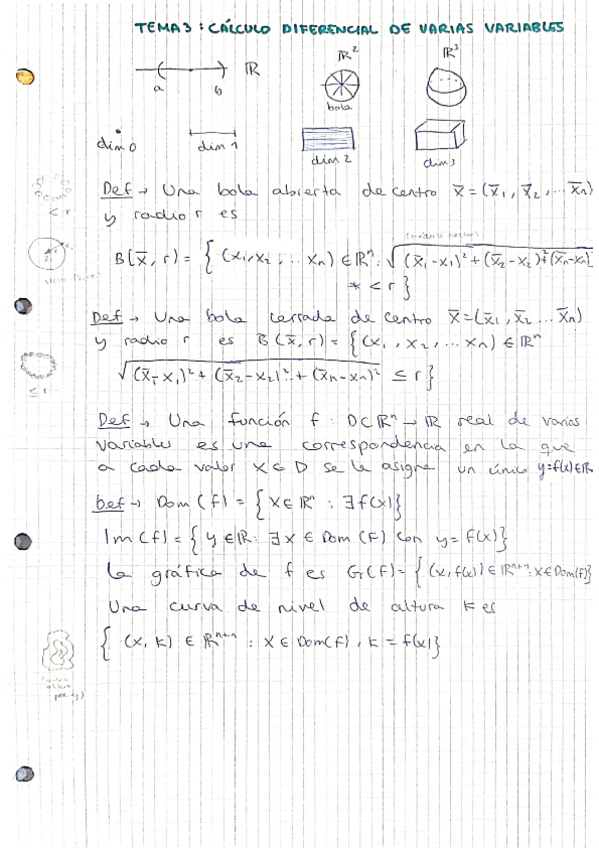 TEMA 3: CÁLCULO DIFERENCIAL DE VARIAS VARIABLES
ℝ ℝ² ℝ³
a b
bola
dim 0 dim 1 dim 2 dim 3
Def → Una bola abierta de centro x̄ = (x̄₁, x̄₂, ... x̄n)
< r y radio r es
B(x̄, r) = { (x₁, x₂, ... xn) ∈ ℝⁿ: √(x̄₁-x₁)² + (x̄₂-x₂)² + (x̄n-xn)²
* < r }
Def → Una bola cerrada de centro x̄ = (x̄₁, x̄₂ ... x̄n)
y radio r es B(x̄, r) = { (x₁, x₂, ... xn) ∈ ℝⁿ
≤ r √(x̄₁-x₁)² + (x̄₂-x₂)² + (x̄n-xn)² ≤ r }
Def → Una función f: D⊂ℝⁿ → ℝ real de varias
variables es una correspondencia en la que
a cada valor x ∈ D se le asigna un único y=f(x) ∈ ℝ
Def → Dom (f) = { x ∈ ℝⁿ : ∃ f(x) }
Im (f) = { y ∈ ℝ: ∃ x ∈ Dom (f) con y = f(x) }
La gráfica de f es Gr(f) = { (x, f(x)) ∈ ℝⁿ⁺¹: x ∈ Dom(f) }
Una curva de nivel de altura k es
{ (x, k) ∈ ℝⁿ⁺¹ : x ∈ Dom(f), k = f(x) }